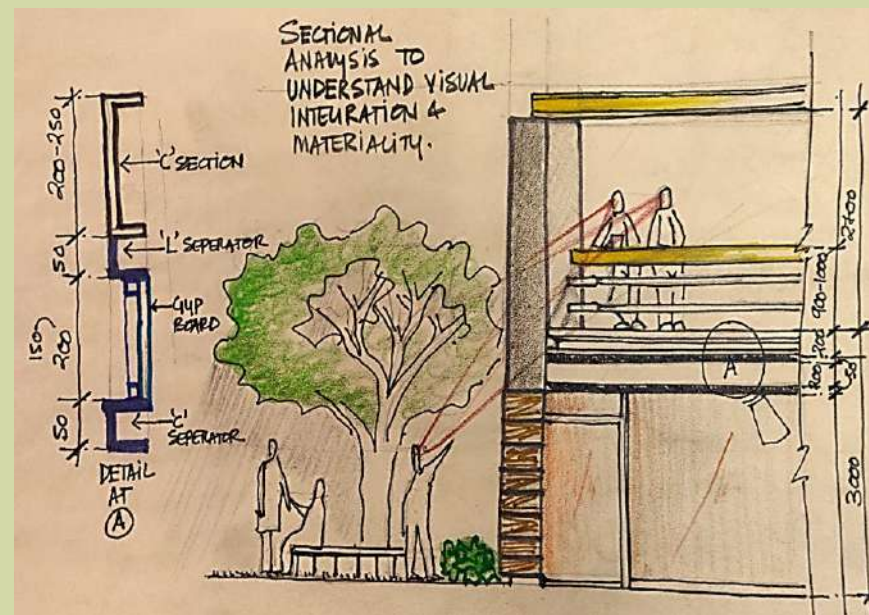 SECTIONAL
ANALYSIS TO
UNDERSTAND VISUAL
INTEURATION &
MATERIALITY.
200-250
'C' SECTION
50
'L' SEPERATOR
GYP
BOARD
150
200
50
'C'
SEPERATOR
DETAIL
AT
A
A
2700
900-1000
200
50
3000